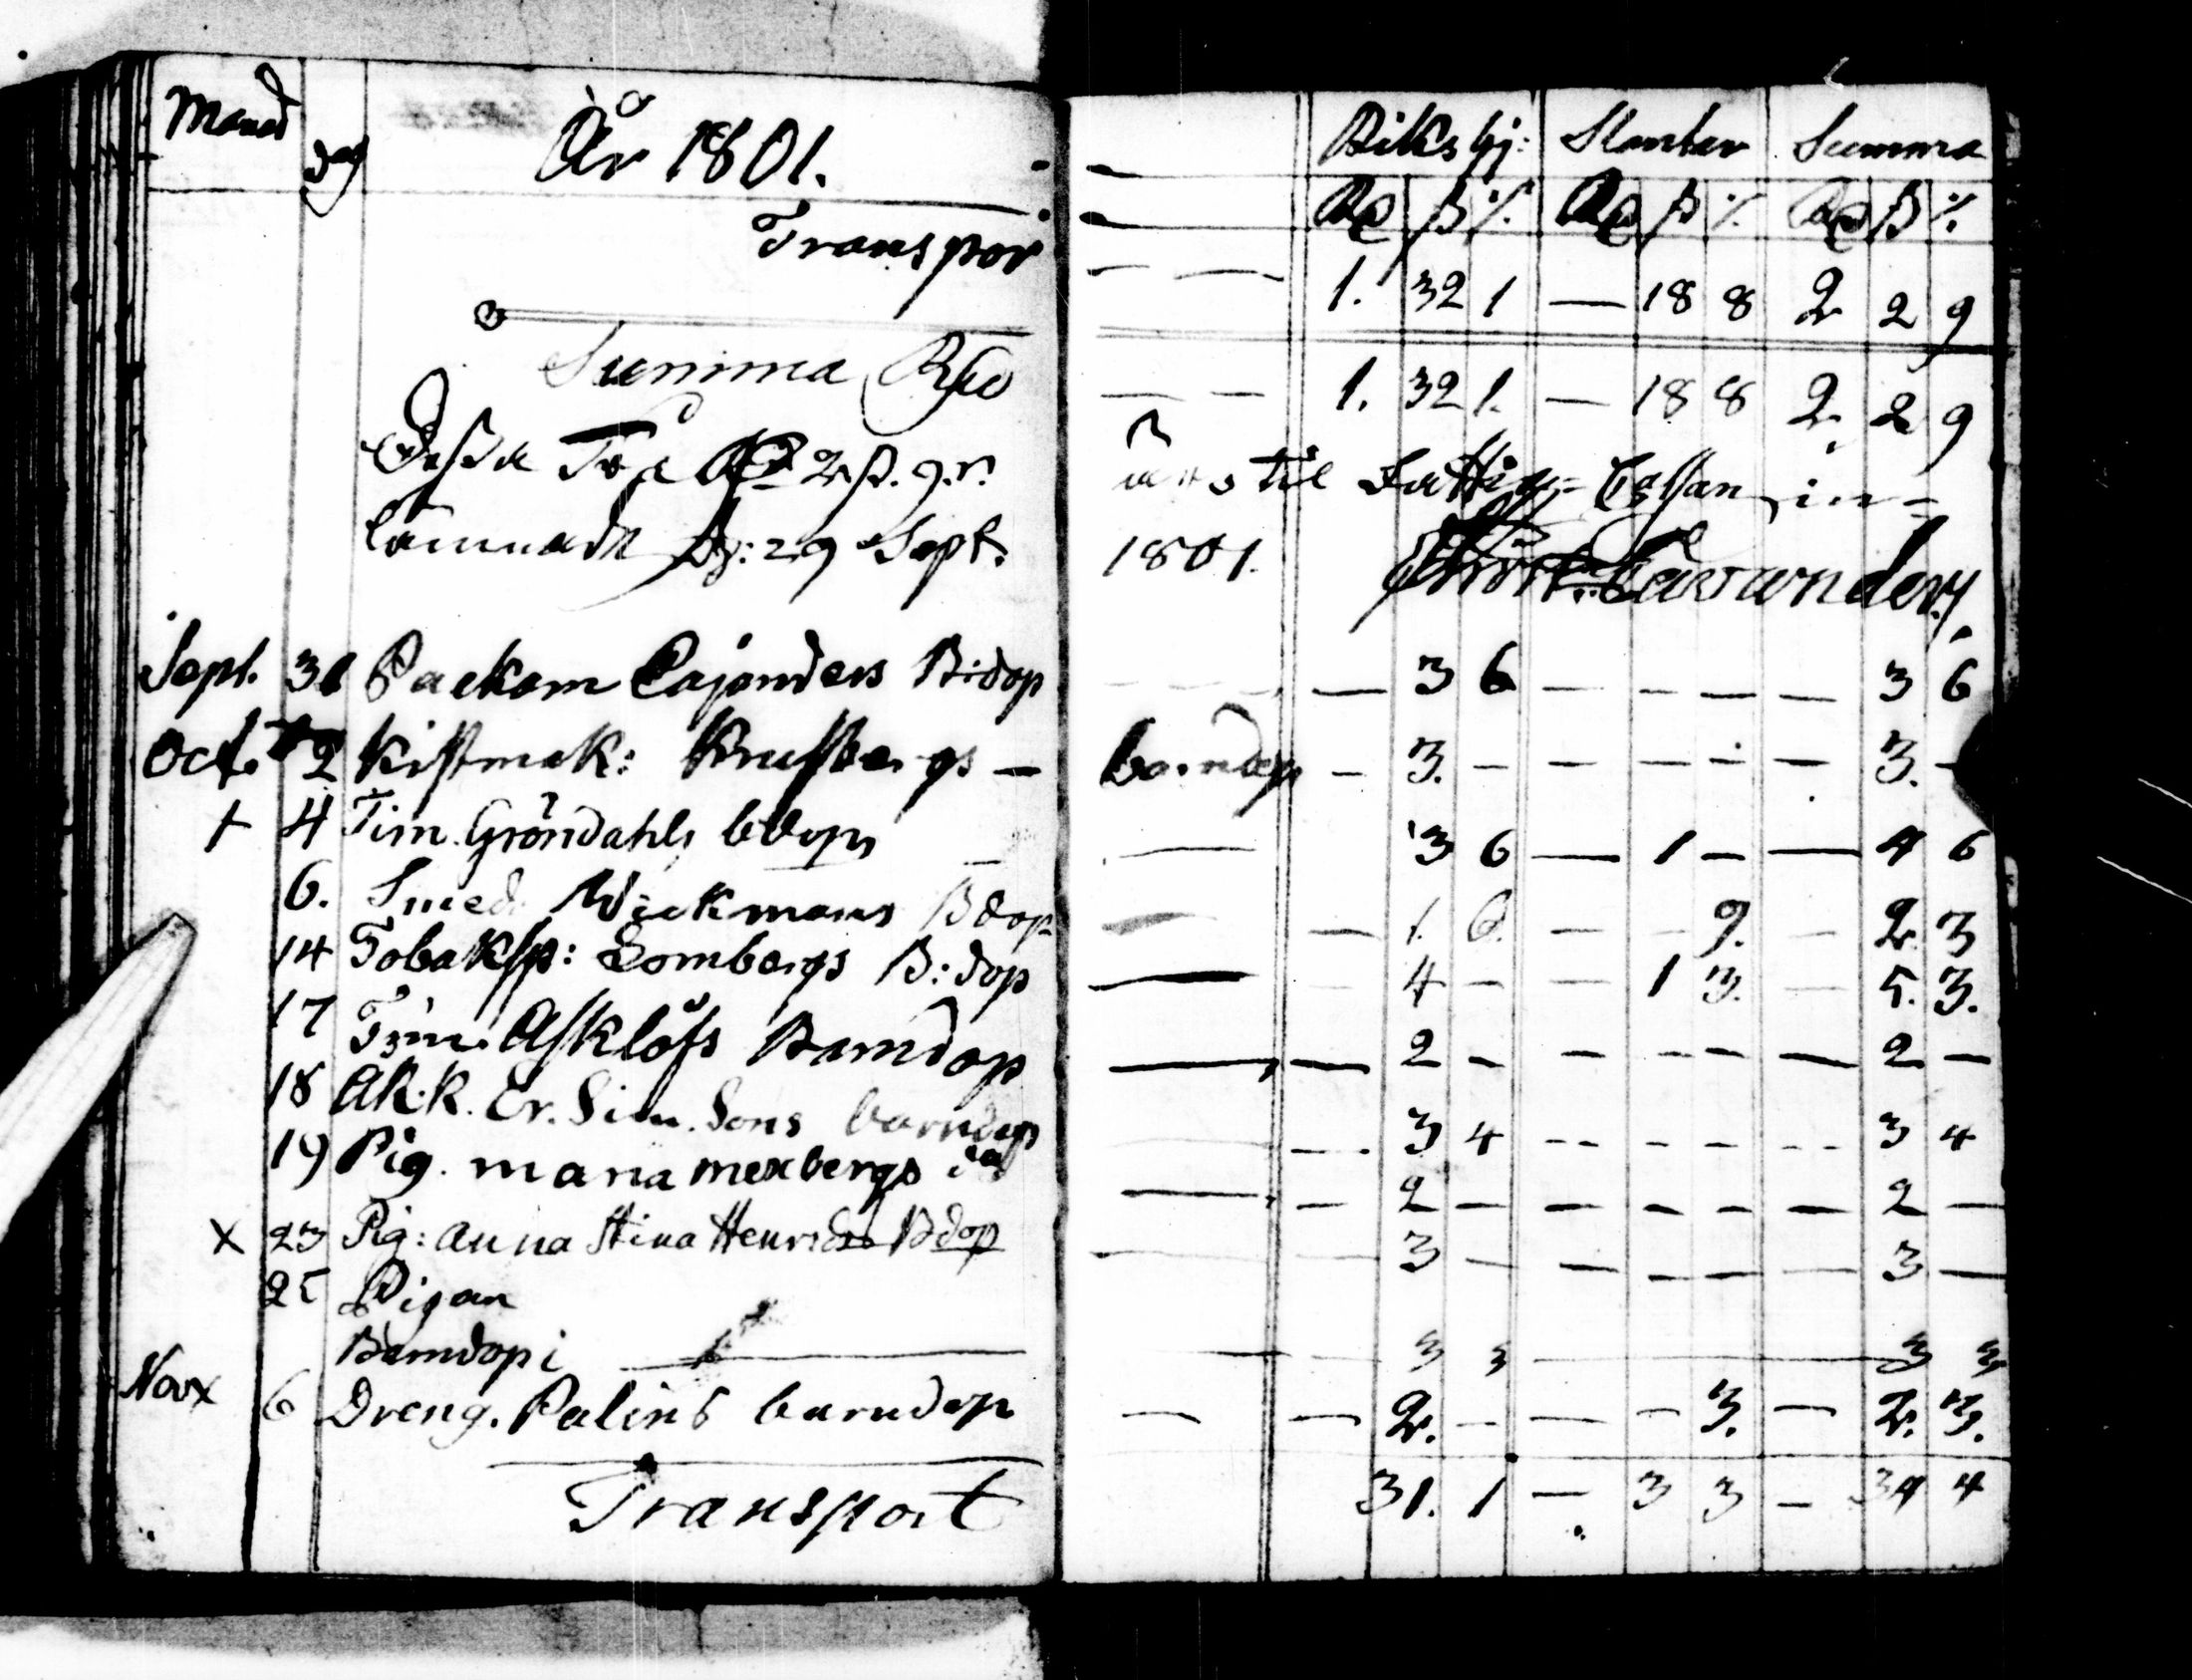 Månad Dag År 1801. Riksgj: Slantar Summa
Rd ß r. Rd ß r. Rd ß r.
Transpor — — 1. 32 1 — 18 8 2 2 9
Summa Rd — — 1. 32 1. — 18 8 2. 2 9
Dessa Två Rd 2 ß. 9. r. til Fattig-Cassan in-
lämnade D: 29 Sept. 1801.
Sept. 30 Packam Cajanders B:dop — 3 6 — — — — 3 6
Oct. 2 Kistmak: — barndop — 3. — — — — — 3. —
+ 4 Tim. Gröndahls bdop — 3 6 — 1 — — 4 6
6. Smed. Wickmans Bdop — 1. 6. — — 9. — 2. 3
14 Tobaksp: Lombergs B:dop — 4 — — 1 3. — 5. 3.
17 Tim. Asklöfs Barndop — — 2 — — — — — 2 —
18 Ak.k. Er. Sim. Sons barndop — 3 4 — — — — 3 4
19 Pig. maria mexbergs — — 2 — — — — — 2 —
x 23 Pig: anna Stina Henrids Bdop — 3 — — — — — 3 —
25 Pigan
Barndop i — — 3 3 — 3 3
Nov x 6 Dreng. Palins barndop — — 2. — — — 3. — 2. 3.
Transport 31. 1 — 3 3 — 34 4